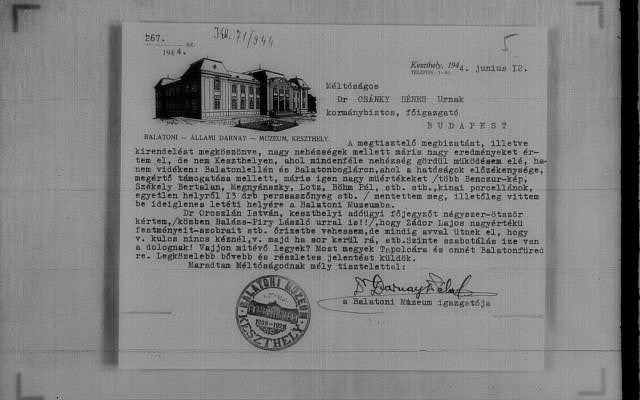 267. sz.
194 4.
Ikt. 71/944
5
Keszthely, 194 4. junius 12.
TELEFON: 1-
Méltóságos
Dr CSÁNKY DÉNES Urnak
kormánybiztos, főigazgató
BUDAPEST
BALATONI — ÁLLAMI DARNAY — MÚZEUM, KESZTHELY.
A megtisztelő megbizatást, illetve
kirendelést megköszönve, nagy nehézségek mellett máris nagy eredményeket ér-
tem el, de nem Keszthelyen, ahol mindenféle nehézség gördül működésem elé, ha-
nem vidéken: Balatonlellén és Balatonbogláron, ahol a hatóságok előzékenysége,
megértő támogatása mellett, máris igen nagy műértékeket /több Benczur-kép,
Székely Bertalan, Megnyánszky, Lotz, Böhm Pál, stb. stb., kinai porcellánok,
egyetlen helyről 13 drb perzsaszőnyeg stb. / mentettem meg, illetőleg vittem
be ideiglenes letéti helyére a Balatoni Muzeumba.
Dr Oroszlán István, keszthelyi adóügyi főjegyzőt négyszer-ötször
kértem, /közben Balázs-Piry László urral is!!/, hogy Zádor Lajos nagyértékű
festményeit-szobrait stb. őrizetbe vehessem, de mindig avval ütnek el, hogy
v. kulcs nincs kéznél, v. majd ha sor kerül rá, stb. Szinte szabotálás ize van
a dolognak! Vajjon mitévő legyek? Most megyek Tapolcára és onnét Balatonfüred
re. Legközelebb bővebb és részletes jelentést küldök.
Maradtam Méltóságodnak mély tisztelettel:
Dr Darnay Béla
a Balatoni Múzeum igazgatója
BALATONI MÚZEUM
1898-1928
KESZTHELY